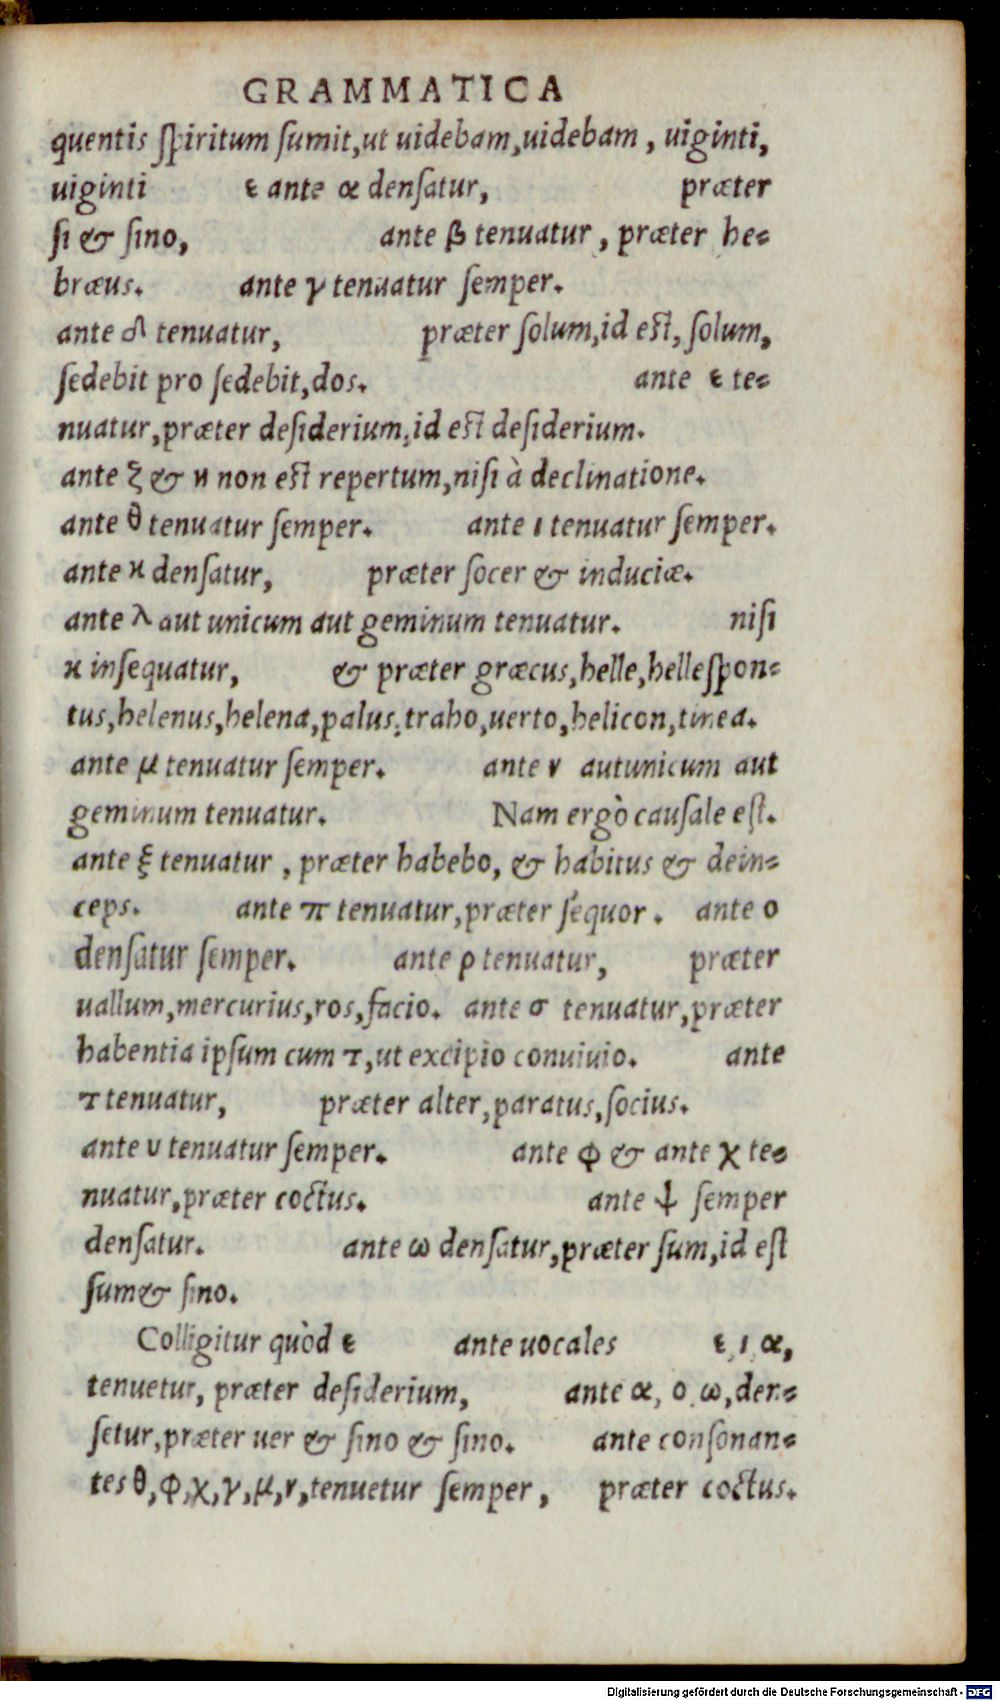 GRAMMATICA
quentis ſpiritum ſumit,ut uidebam,uidebam , uiginti,
uiginti ε ante α denſatur, præter
ſi & ſino, ante β tenuatur , præter he-
bræus. ante γ tenuatur ſemper.
ante δ tenuatur, præter ſolum,id eſt, ſolum,
ſedebit pro ſedebit,dos. ante ε te-
nuatur,præter deſiderium,id eſt deſiderium.
ante ζ & η non eſt repertum,niſi à declinatione.
ante θ tenuatur ſemper. ante ι tenuatur ſemper.
ante κ denſatur, præter ſocer & induciæ.
ante λ aut unicum aut geminum tenuatur. niſi
κ inſequatur, & præter græcus,helle,helleſpon-
tus,helenus,helena,palus,traho,uerto,helicon,tinea.
ante μ tenuatur ſemper. ante ν autunicum aut
geminum tenuatur. Nam ergò cauſale eſt.
ante ξ tenuatur , præter habebo, & habitus & dein-
ceps. ante π tenuatur,præter ſequor . ante ο
denſatur ſemper. ante ρ tenuatur, præter
uallum,mercurius,ros,facio. ante σ tenuatur,præter
habentia ipſum cum τ,ut excipio conuiuio. ante
τ tenuatur, præter alter,paratus,ſocius.
ante υ tenuatur ſemper. ante φ & ante χ te-
nuatur,præter coctus. ante ψ ſemper
denſatur. ante ω denſatur,præter ſum,id eſt
ſum& ſino.
Colligitur quòd ε ante uocales ε,ι,α,
tenuetur, præter deſiderium, ante α, ο,ω,den-
ſetur,præter uer & ſino & ſino. ante conſonan-
tes θ,φ,χ,γ,μ,ν,tenuetur ſemper , præter coctus.
Digitalisierung gefördert durch die Deutsche Forschungsgemeinschaft - DFG